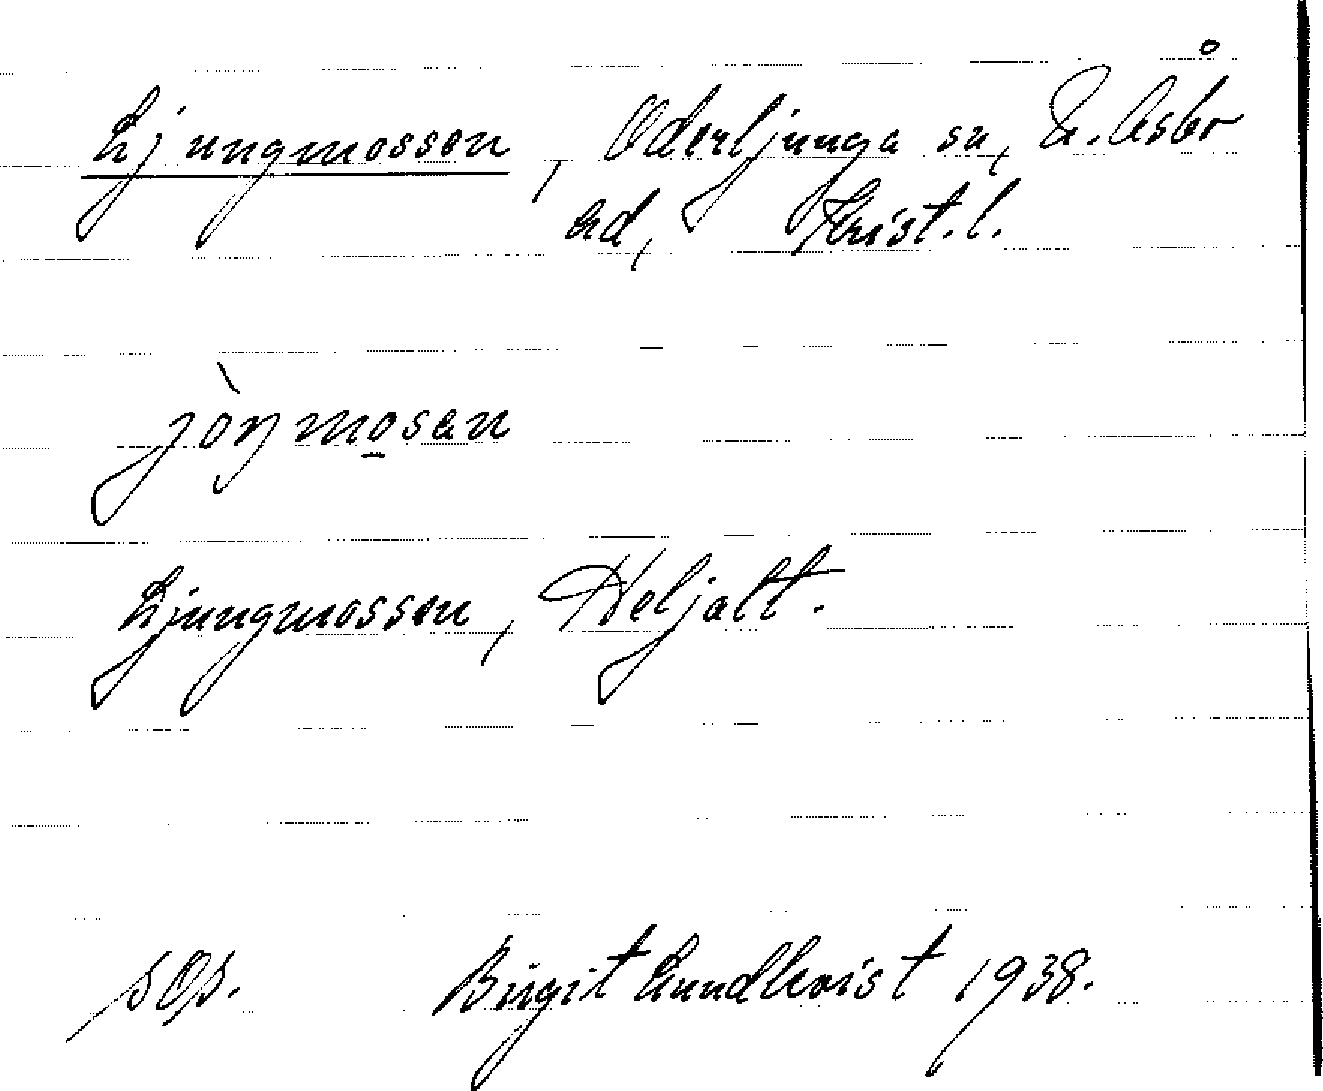 Ljungmossen, Oderljunga sn, N. Åsbo
hd, Krist.l.
jòŋmo̲sən
Ljungmossen, Heljalt.
Birgit Lundkvist 1938.